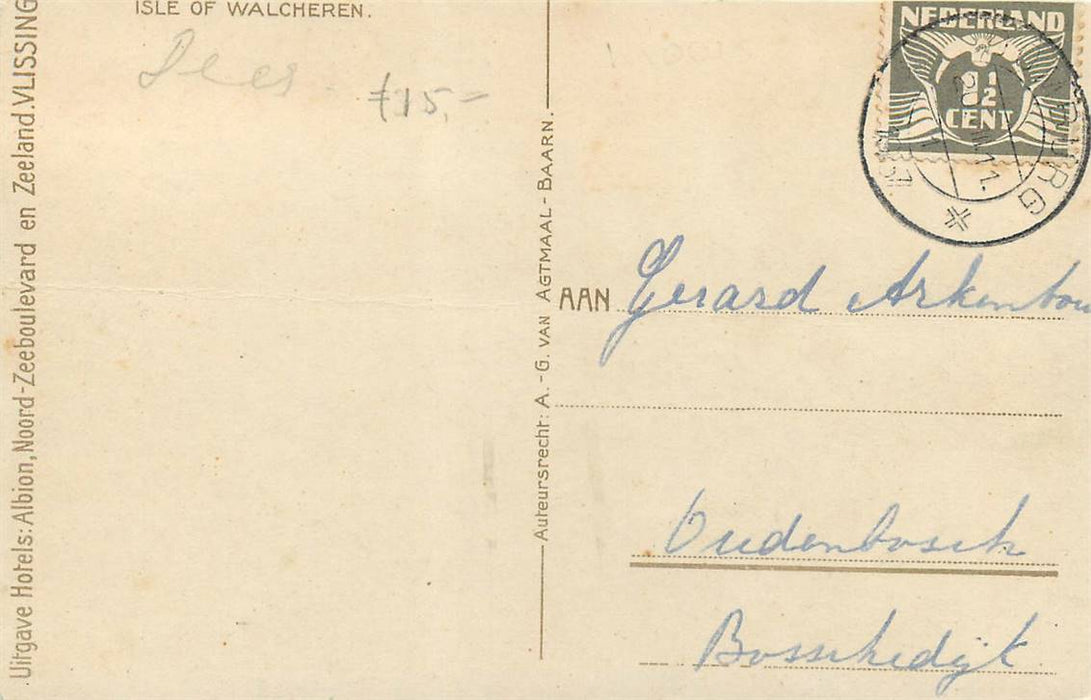 ISLE OF WALCHEREN.
₤15,-
Uitgave Hotels: Albion, Noord-Zeeboulevard en Zeeland. VLISSING
Auteursrecht: A.-G. VAN AGTMAAL-BAARN.
NEDERLAND
1½
CENT
AAN Gerard Arkenbou
Oudenbosch
Bosschedijk